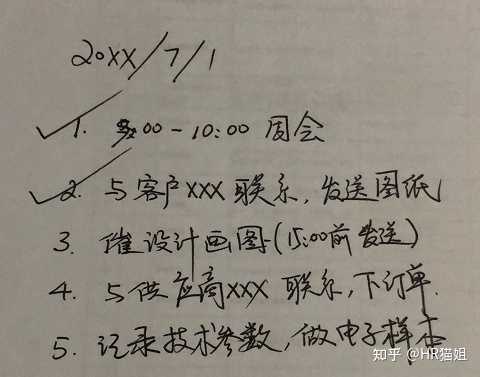 20XX/7/1
✓1. 8:00-10:00 周会
✓2. 与客户XXX联系,发送图纸
3. 催设计画图(15:00前发送)
4. 与供应商XXX联系,下订单.
5. 记录技术参数,做电子样本
知乎 @HR猫姐